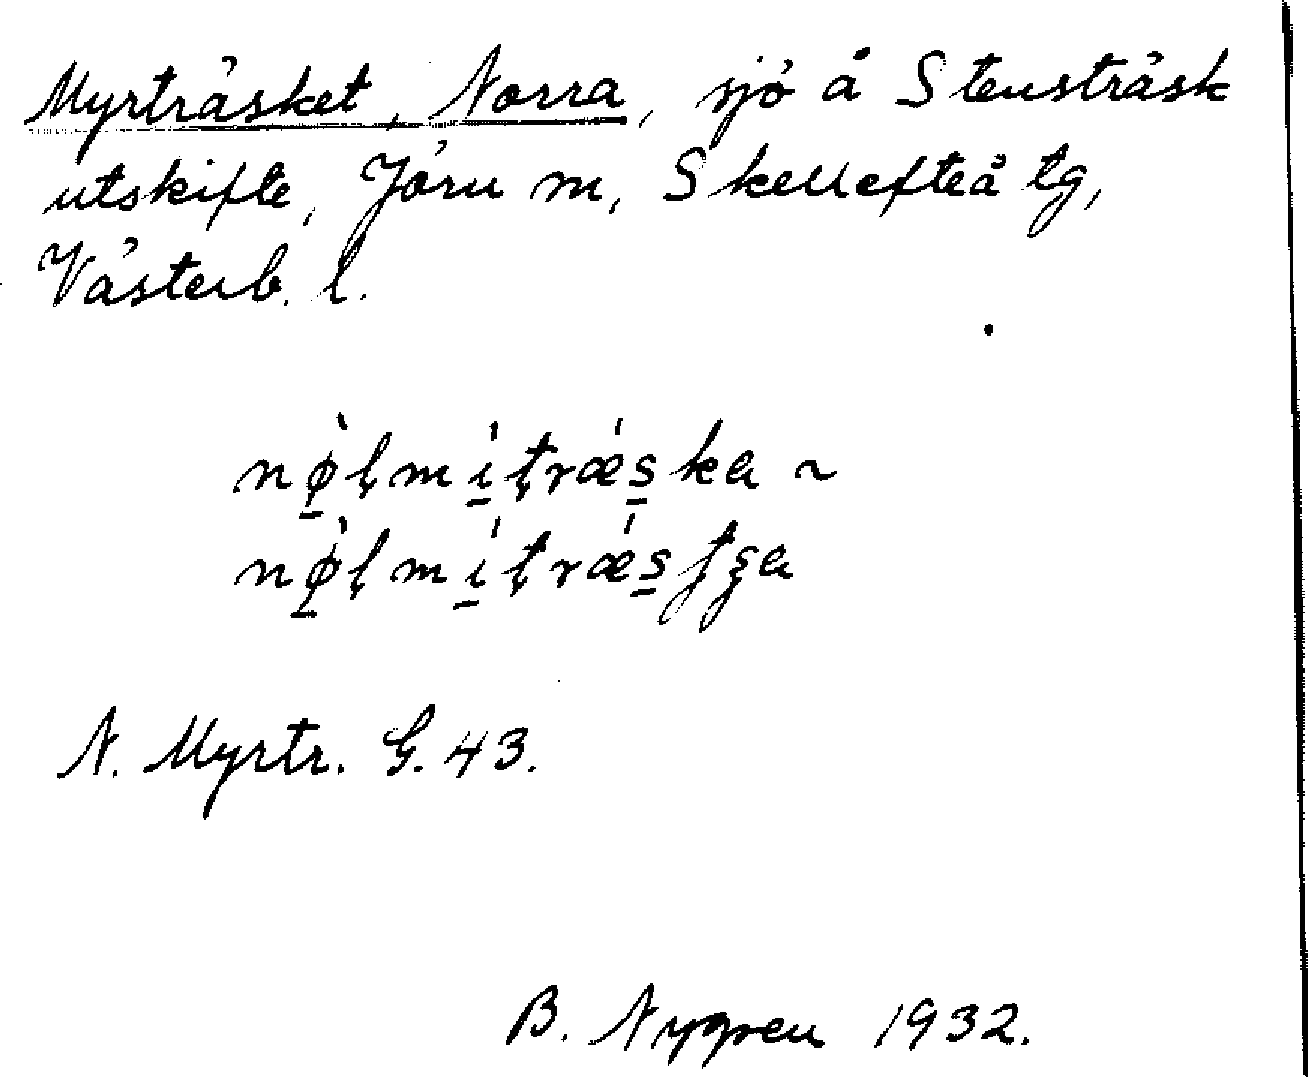 Myrträsket, Norra, sjö å Stensträsk
utskifte, Jörn m, Skellefteå tg,
Västerb. l.
nø̠̀ļmì̠ţrǽs̠ka ~
nø̠̀ļmì̠ţrǽs̠ʈʂa
N. Myrtr. G. 43.
B. Nygren 1932.